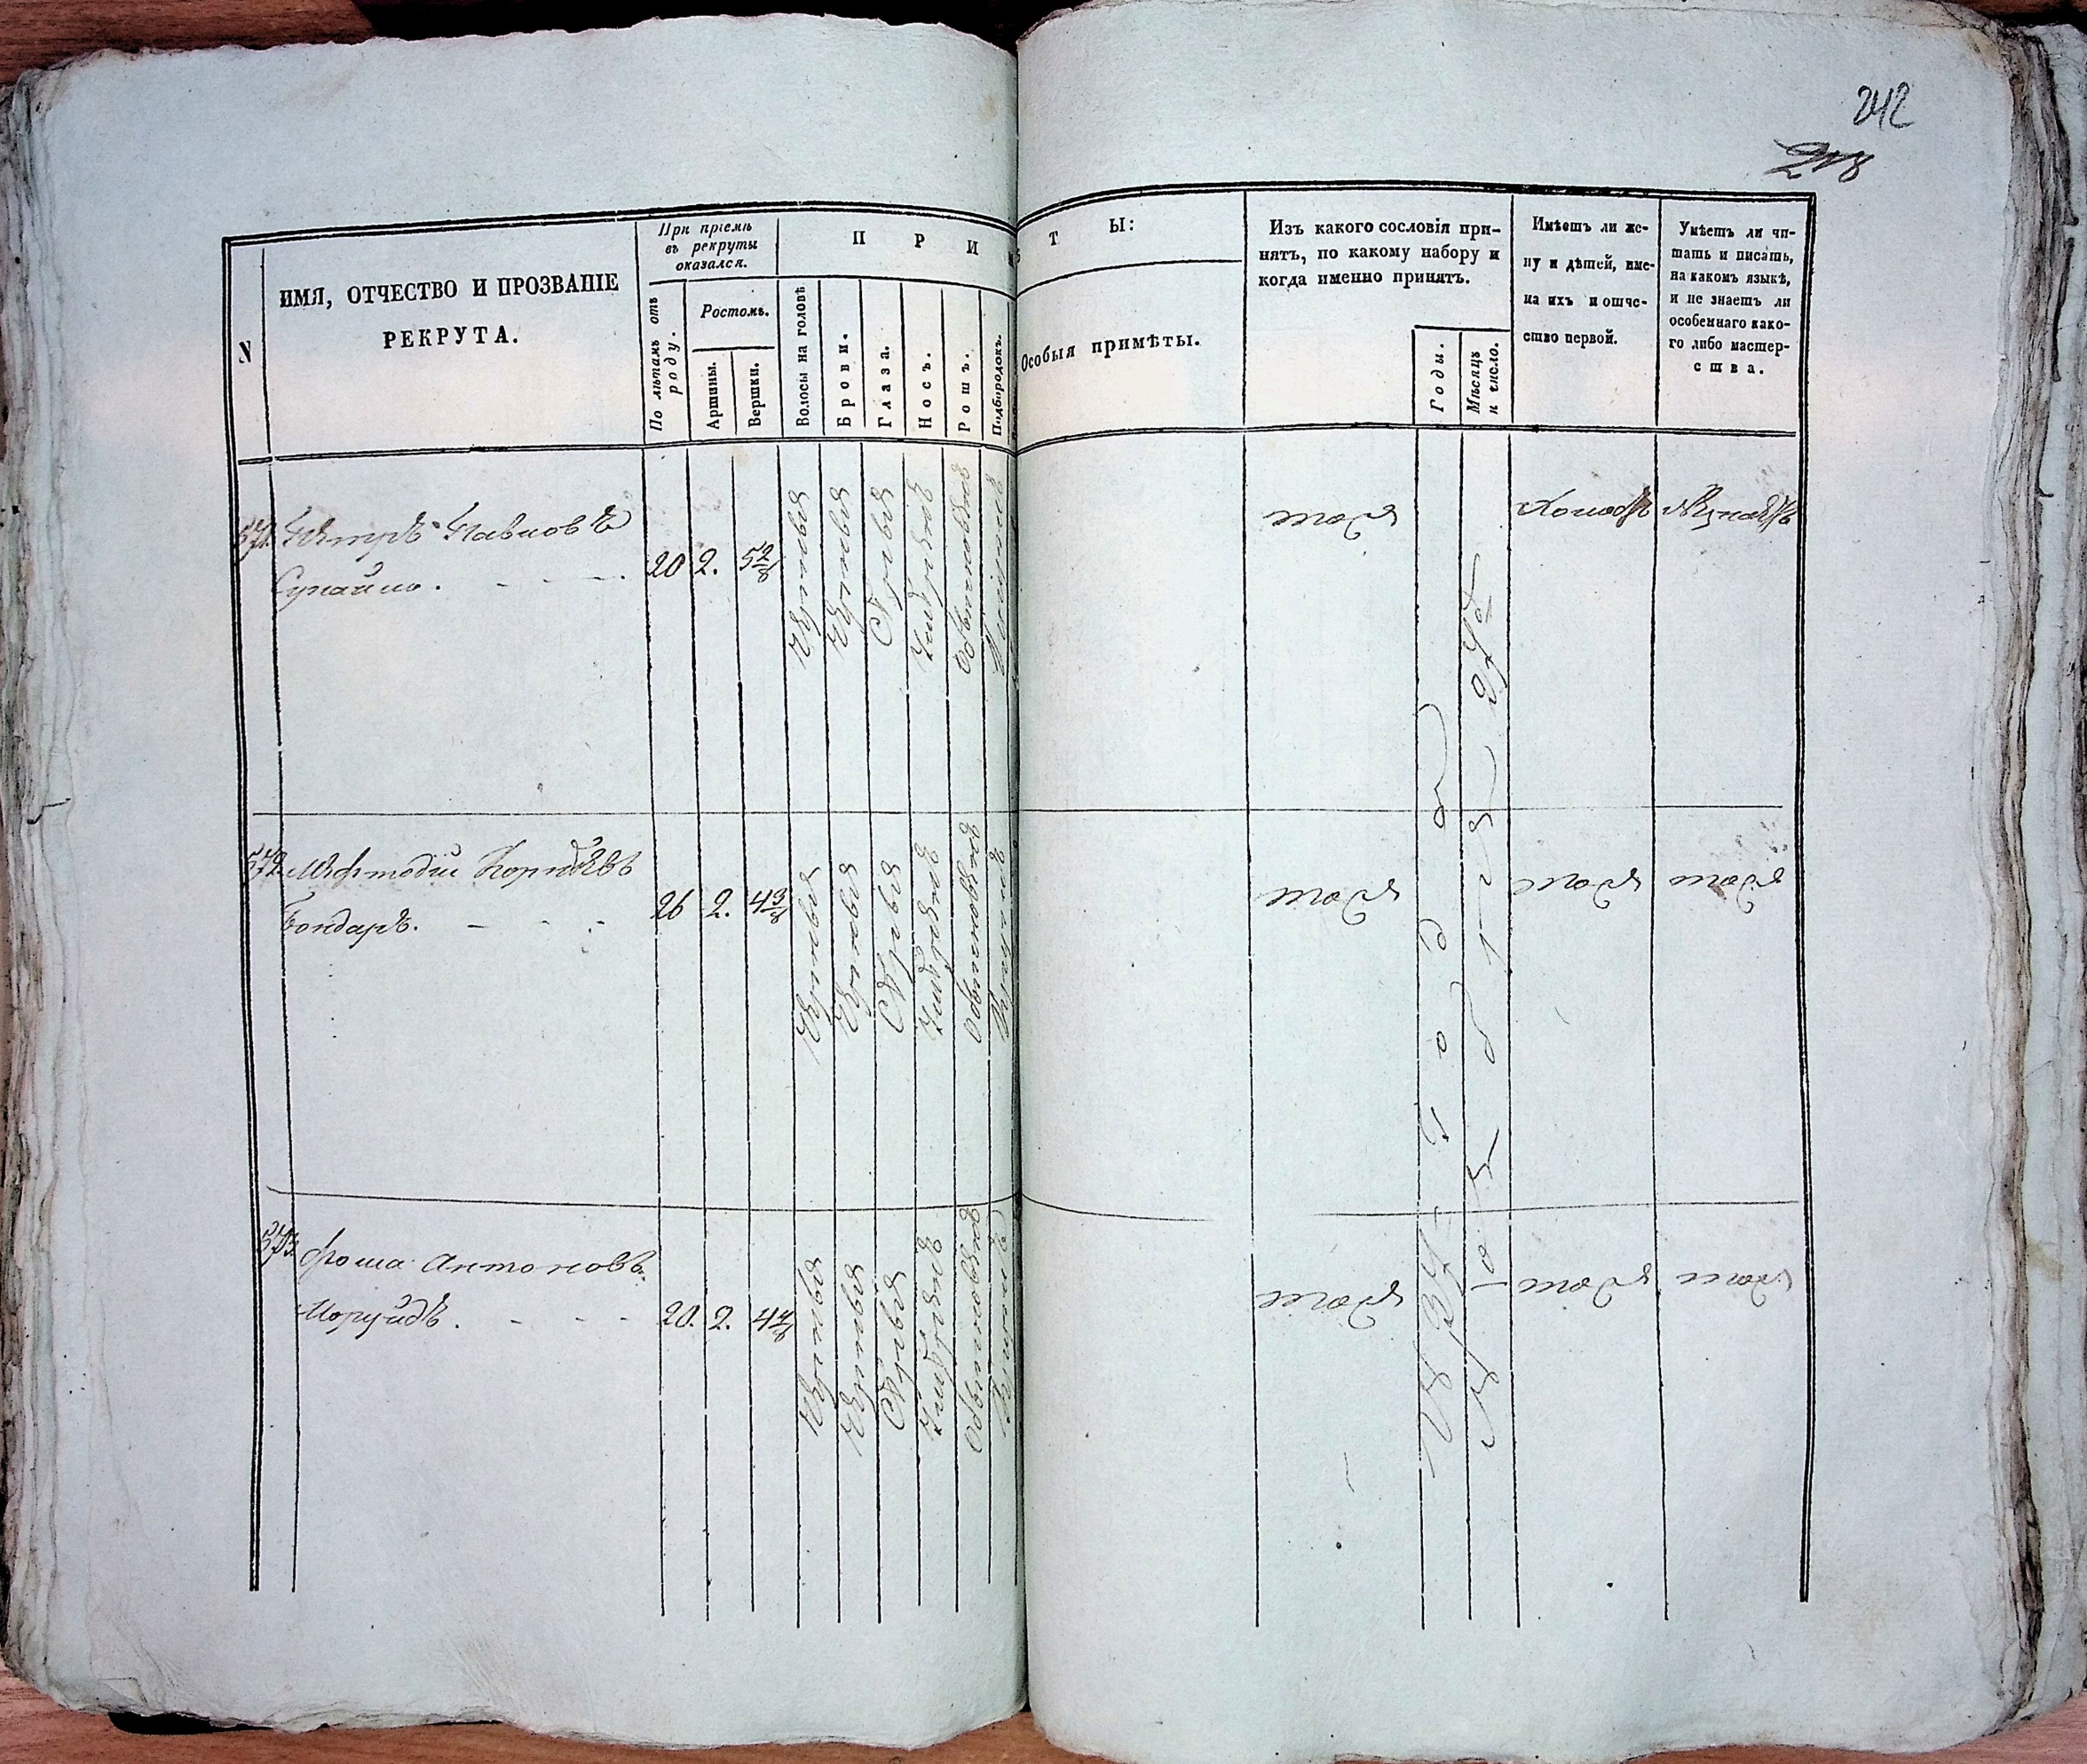 242
N
ИМЯ, ОТЧЕСТВО И ПРОЗВАНІЕ
РЕКРУТА.
При пріемѣ
въ рекруты
оказался.
По лѣтамъ отъ
роду.
Ростомъ.
Аршины.
Вершки.
П Р И М Ѣ Т Ы:
Волосы на головѣ
Брови.
Глаза.
Носъ.
Ротъ.
Подбородокъ.
Особыя примѣты.
Изъ какого сословія при-
нятъ, по какому набору и
когда именно принятъ.
Годы.
Мѣсяцъ
и число.
Имѣетъ ли же-
ну и дѣтей, име-
на ихъ и отче-
ство первой.
Умѣетъ ли чи-
тать и писать,
на какомъ языкѣ,
и не знаетъ ли
особеннаго како-
го либо мастер-
ства.
571. Петръ Павловъ
20 2. 5 2/8
Черныя
Черныя
Сѣрыя
Умѣренъ
Обыкновенъ
тоже
Холостъ
Незнаетъ
572. Мефтодій Корнѣевъ
Бондарь.
26 2. 4 3/8
Черныя
Черныя
Сѣрыя
Умѣренъ
Обыкновенъ
тоже
тоже
тоже
573. Фома Антоновъ
20. 2. 4 4/8
Черныя
Черныя
Сѣрыя
Умѣренъ
Обыкновенъ
тоже
тоже
тоже
года